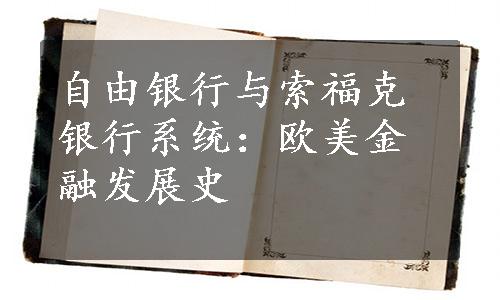 自由银行与索福克
银行系统：欧美金
融发展史